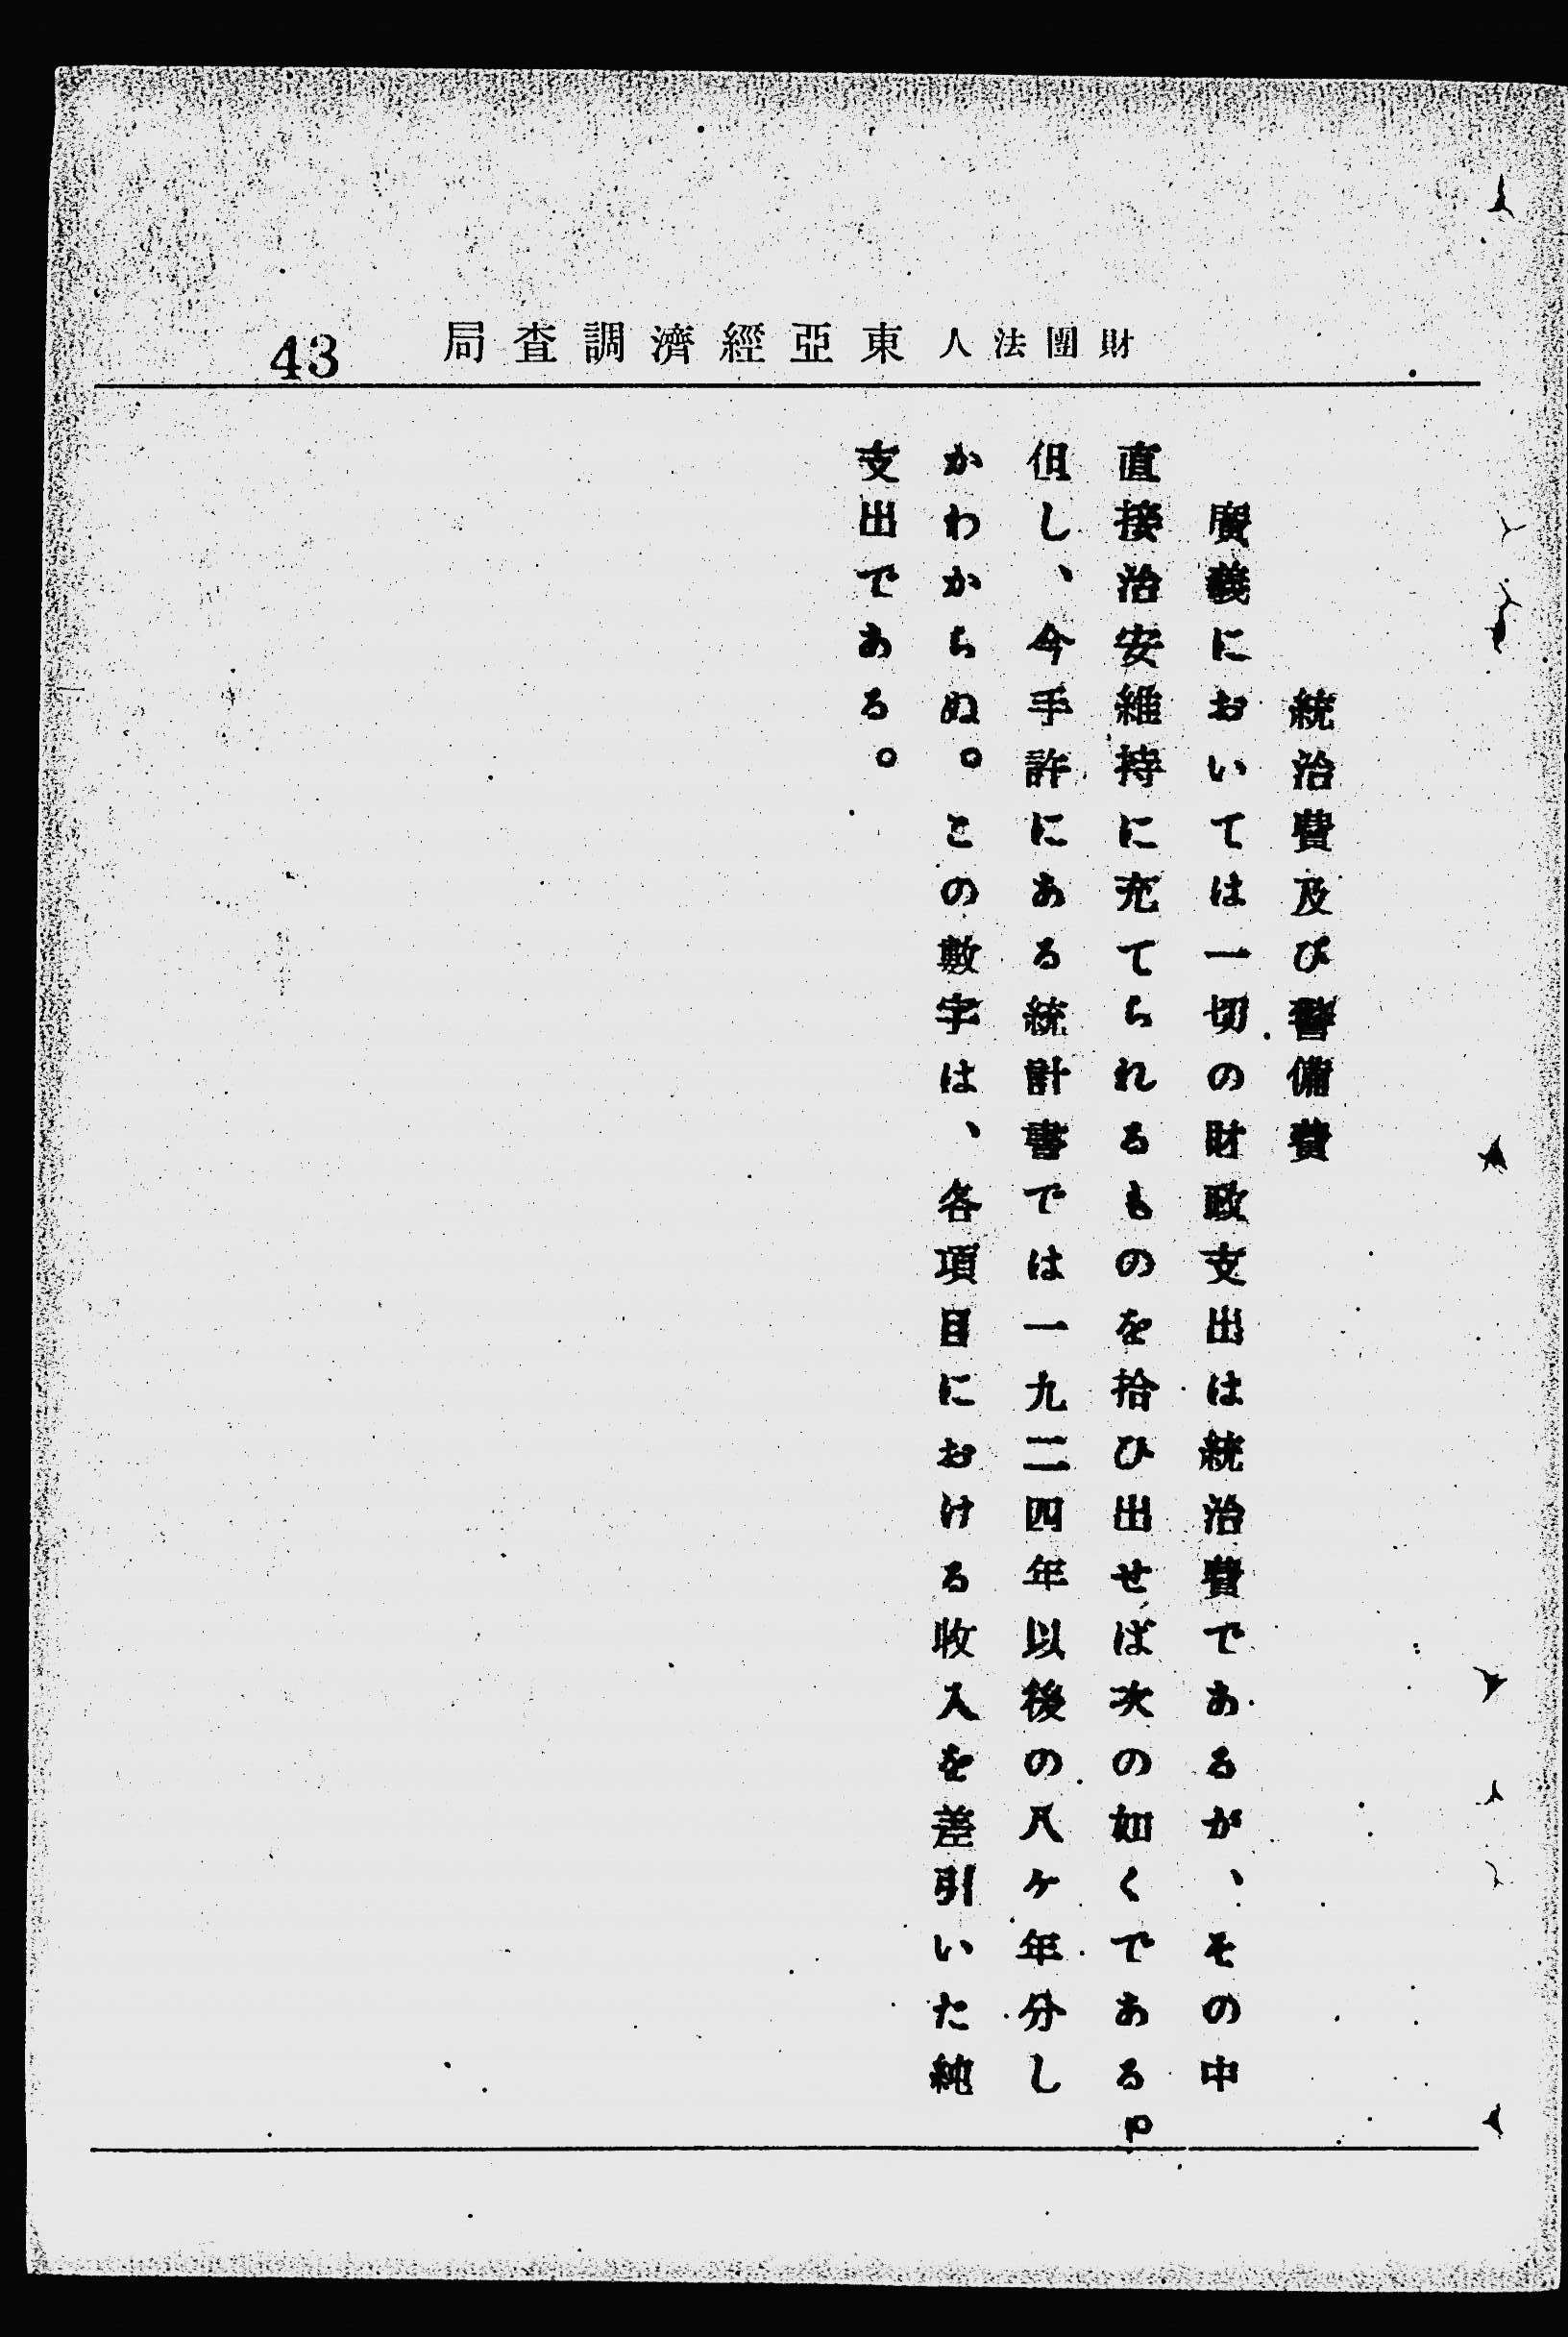 財團法人東亞經濟調査局
43
統治費及び警備費
廣義においては一切の財政支出は統治費であるが、その中
直接治安維持に充てられるものを拾ひ出せば次の如くである。
但し、今手許にある統計書では一九二四年以後の八ヶ年分し
かわからぬ。この數字は、各項目における收入を差引いた純
支出である。